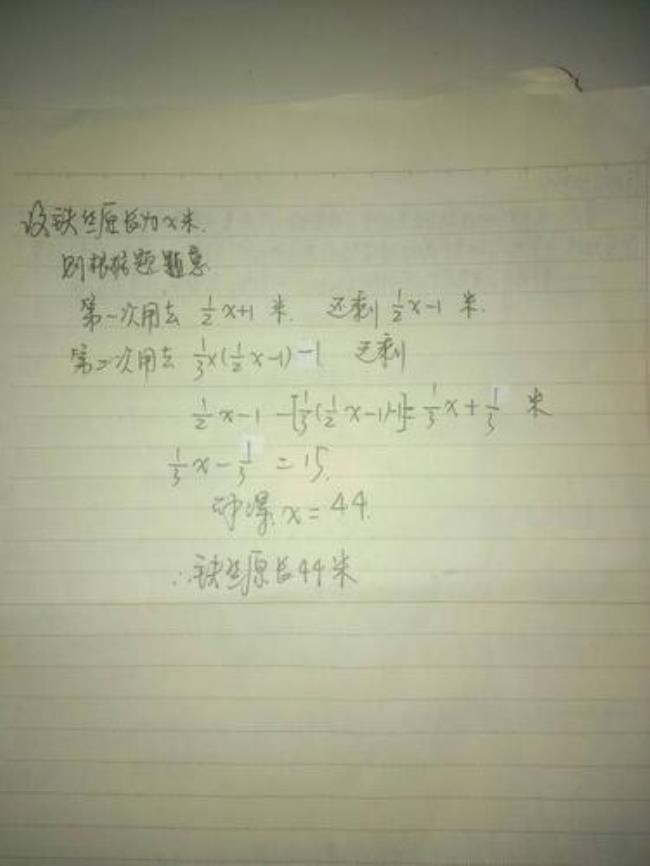 设铁丝原长为x米.
则根据题题意
第一次用去 1/2 x+1 米. 还剩 1/2 x-1 米.
第二次用去 1/3×(1/2 x-1)-1 还剩
1/2 x-1-[1/3(1/2 x-1)-1]=1/3 x+1/3 米
1/3 x-1/3=15.
解得 x=44.
∴铁丝原长44米